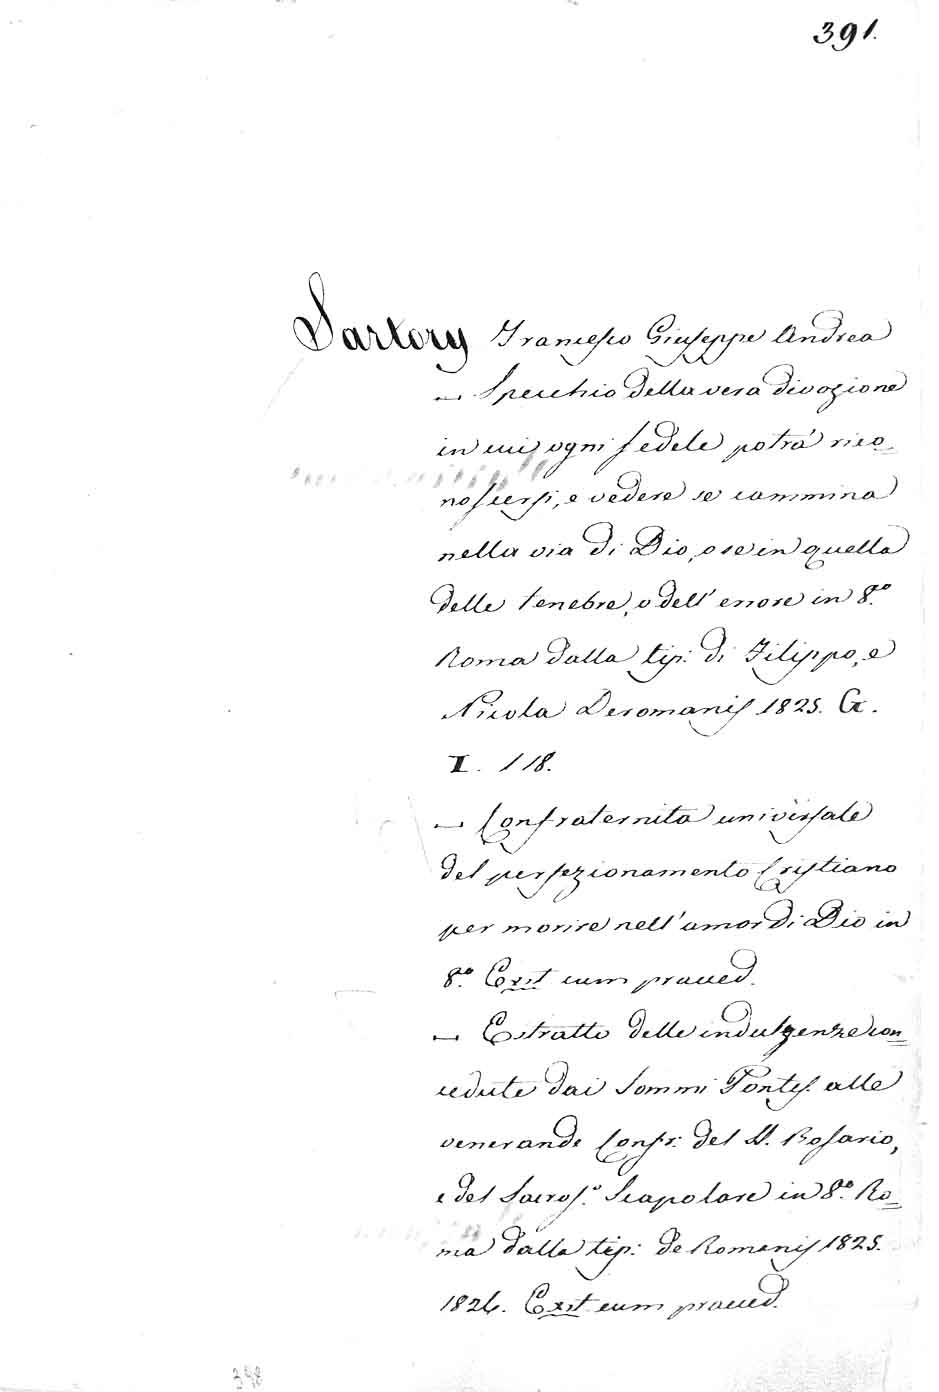 391.
Sartory Francesco Giuseppe Andrea
— Specchio della vera divozione
in cui ogni fedele potrà rico=
noscersi, e vedere se cammina
nella via di Dio, o se in quella
delle tenebre, o dell' errore in 8.º
Roma dalla tip: di Filippo, e
Nicola Deromanis 1825. G.
I. 118.
— Confraternita universale
del perfezionamento Cristiano
per morire nell' amor di Dio in
8.º Exst cum praeced.
— Estratto delle indulgenze con=
cedute dai Sommi Pontef. alle
venerande Confr: del SS. Rosario,
e del Sacros.º Scapolare in 8.º Ro=
ma dalla tip: de Romanis 1825.
1826. Exst cum praeced.
398